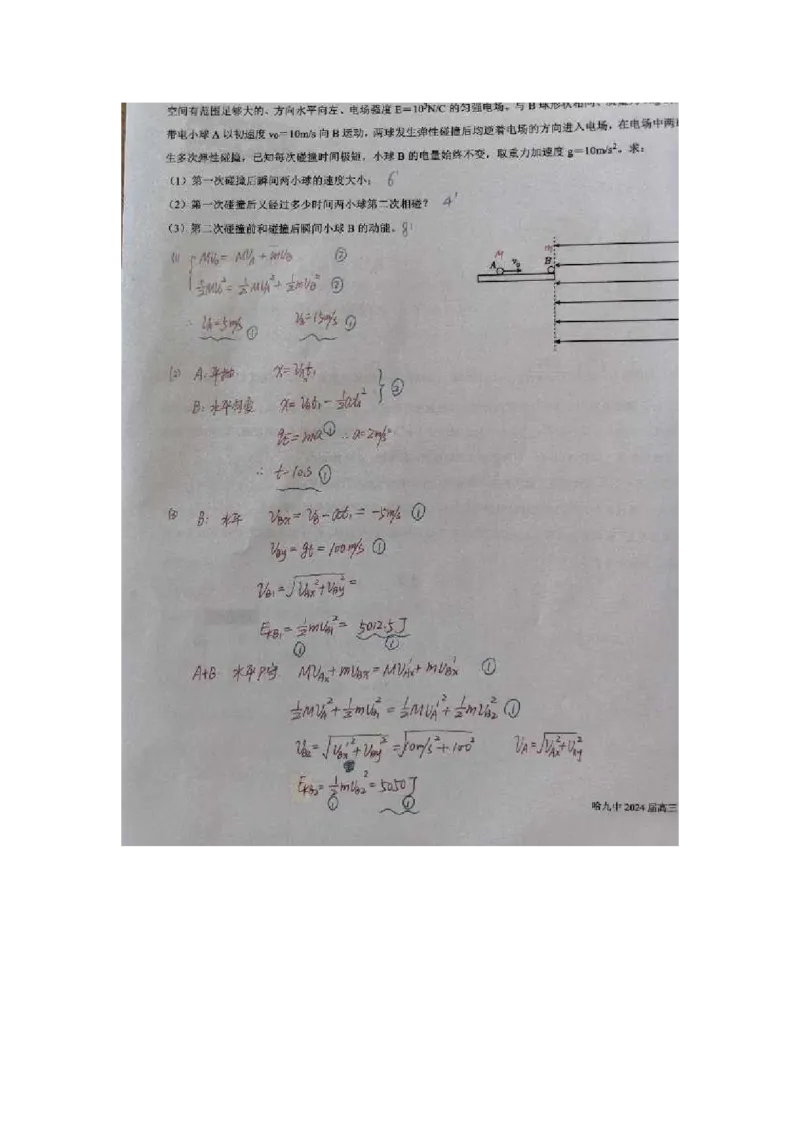 空间有范围足够大的、方向水平向左、电场强度 E=10³N/C 的匀强电场。与 B 球形状相同、
带电小球 A 以初速度 v₀=10m/s 向 B 运动,两球发生弹性碰撞后均逆着电场的方向进入电场,在电场中两
生多次弹性碰撞,已知每次碰撞时间极短,小球 B 的电量始终不变,取重力加速度 g=10m/s²。求:
(1)第一次碰撞后瞬间两小球的速度大小; 6'
(2)第一次碰撞后又经过多少时间两小球第二次相碰? 4'
(3)第二次碰撞前和碰撞后瞬间小球 B 的动能。 8'
M m
A v₀ B
(1) MV₀ = MV_A + mV_B ②
½MV₀² = ½MV_A² + ½mV_B² ②
∴ V_A=5m/s ① V_B=15m/s ①
(2) A: 平抛 x=V_At₁
B: 水平匀变 x=V_Bt₁-½at₁² ②
qE=ma ① ∴a=2m/s²
∴ t=10s ①
(3) B: 水平 V_Bx=V_B-at₁=-5m/s ①
V_By=gt=100m/s ①
V_B1=√(V_Bx²+V_By²)=
E_kB1=½mV_B1²=5012.5J
① ①
A+B 水平P守 MV_Ax+mV_Bx=MV_Ax'+mV_Bx' ①
½MV_A²+½mV_B1²=½MV_A'²+½mV_B2² ①
V_B2=√(V_Bx'²+V_By²)=√(10m/s²+100²) V_A=√(V_Ax²+V_Ay²)
E_kB2=½mV_B2²=5050J
① ①
哈九中 2024 届高三